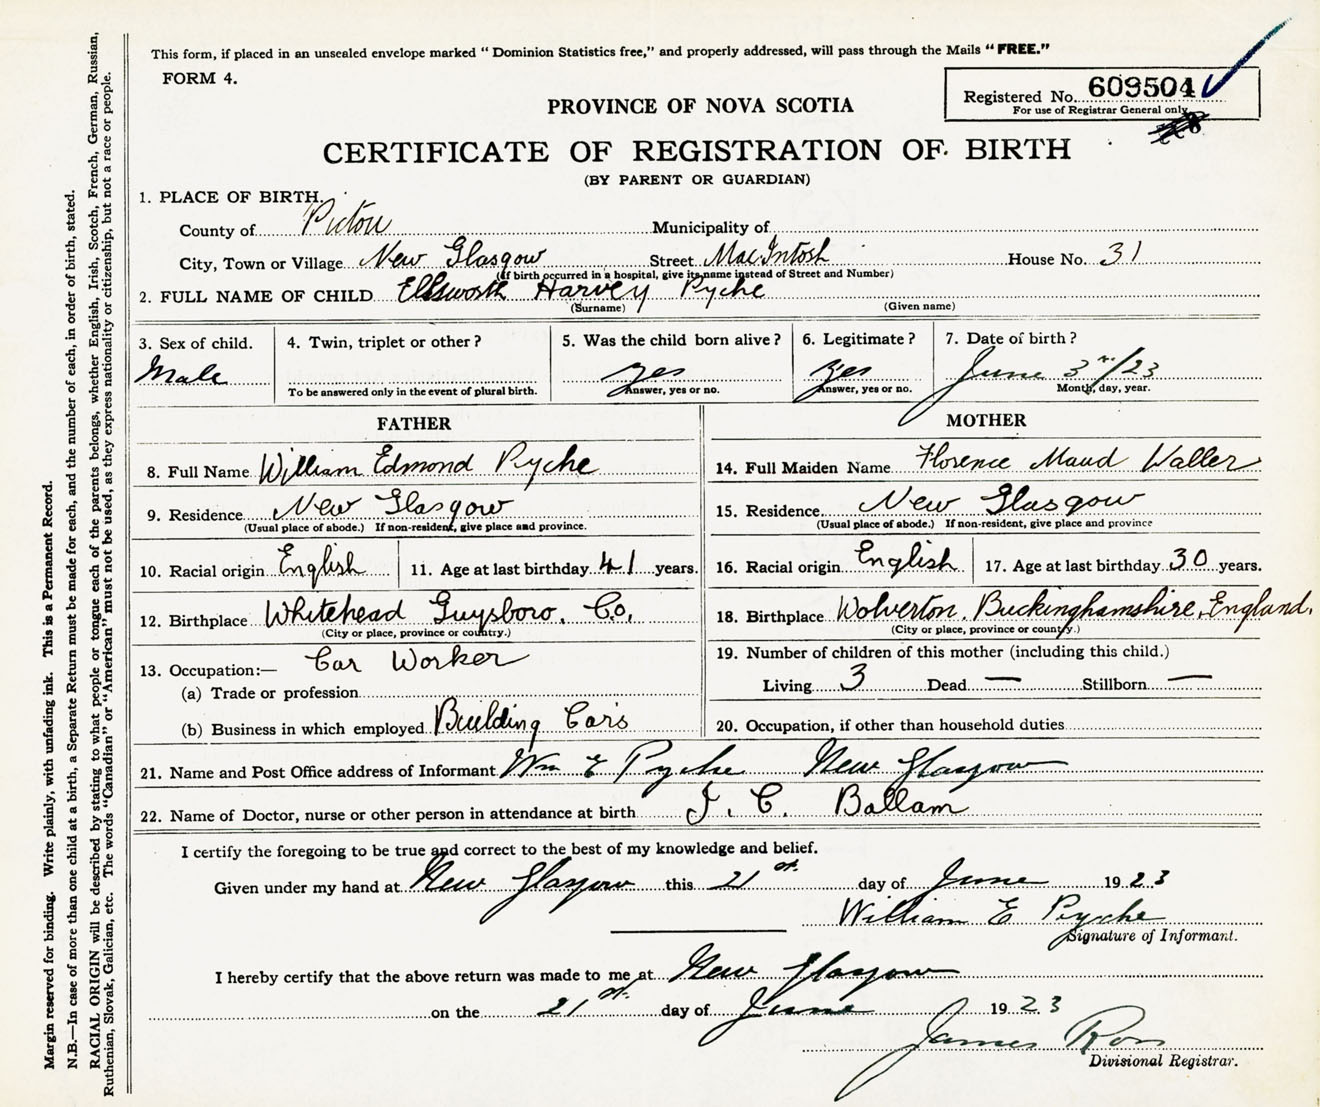 This form, if placed in an unsealed envelope marked "Dominion Statistics free," and properly addressed, will pass through the Mails "FREE."
FORM 4.
Registered No. 609504
For use of Registrar General only
PROVINCE OF NOVA SCOTIA
CERTIFICATE OF REGISTRATION OF BIRTH
(BY PARENT OR GUARDIAN)
1. PLACE OF BIRTH.
County of Pictou Municipality of
City, Town or Village New Glasgow Street MacIntosh House No. 31
(If birth occurred in a hospital, give its name instead of Street and Number)
2. FULL NAME OF CHILD Ellsworth Harvey Pyche
(Surname) (Given name)
3. Sex of child. Male
4. Twin, triplet or other?
To be answered only in the event of plural birth.
5. Was the child born alive? yes
Answer, yes or no.
6. Legitimate? yes
Answer, yes or no.
7. Date of birth? June 3rd/23
Month, day, year.
FATHER
8. Full Name William Edmond Pyche
9. Residence New Glasgow
(Usual place of abode.) If non-resident, give place and province.
10. Racial origin English 11. Age at last birthday 41 years.
12. Birthplace Whitehead Guysboro. Co.
(City or place, province or country.)
13. Occupation:— Car Worker
(a) Trade or profession
(b) Business in which employed Building Cars
MOTHER
14. Full Maiden Name Florence Maud Waller
15. Residence New Glasgow
(Usual place of abode.) If non-resident, give place and province
16. Racial origin English 17. Age at last birthday 30 years.
18. Birthplace Wolverton. Buckinghamshire, England.
(City or place, province or country.)
19. Number of children of this mother (including this child.)
Living 3 Dead — Stillborn —
20. Occupation, if other than household duties
21. Name and Post Office address of Informant Wm E Pyche New Glasgow
22. Name of Doctor, nurse or other person in attendance at birth J. C. Ballam
I certify the foregoing to be true and correct to the best of my knowledge and belief.
Given under my hand at New Glasgow this 21st day of June 1923
William E Pyche
Signature of Informant.
I hereby certify that the above return was made to me at New Glasgow
on the 21st day of June 1923
James Ross
Divisional Registrar.
Margin reserved for binding. Write plainly, with unfading ink. This is a Permanent Record.
N.B.—In case of more than one child at a birth, a Separate Return must be made for each, and the number of each, in order of birth, stated.
RACIAL ORIGIN will be described by stating to what people or tongue each of the parents belongs, whether English, Irish, Scotch, French, German, Russian,
Ruthenian, Slovak, Galician, etc. The words "Canadian" or "American" must not be used, as they express nationality or citizenship, but not a race or people.